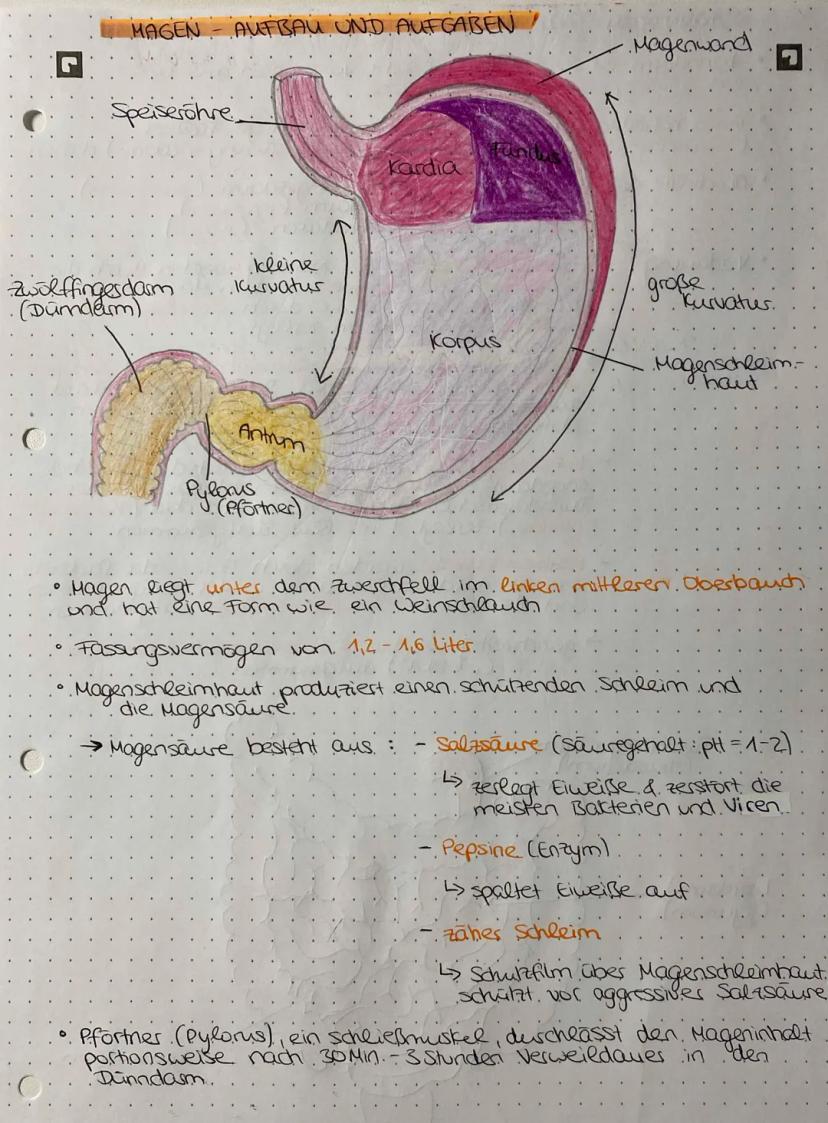 MAGEN - AUFBAU UND AUFGABEN
Magenwand
Speiseröhre
Kardia
Fundus
kleine
Kurvatur
Zwölffingerdarm
(Dünndarm)
große
Kurvatur
Korpus
Magenschleim-
haut
Antrum
Pylorus
(Pförtner)
° Magen liegt unter dem Zwerchfell im linken mittleren Oberbauch
und hat eine Form wie ein Weinschlauch
° Fassungsvermögen von 1,2 - 1,6 Liter
° Magenschleimhaut produziert einen schützenden Schleim und
die Magensäure
→ Magensäure besteht aus : - Salzsäure (Säuregehalt: pH = 1-2)
↳ zerlegt Eiweiße & zerstört die
meisten Bakterien und Viren
- Pepsine (Enzym)
↳ spaltet Eiweiße auf
- zäher Schleim
↳ Schutzfilm über Magenschleimhaut
schützt vor aggressiver Salzsäure
° Pförtner (Pylorus), ein Schließmuskel, durchlässt den Mageninhalt
portionsweise nach 30 Min. - 3 Stunden Verweildauer in den
Dünndarm